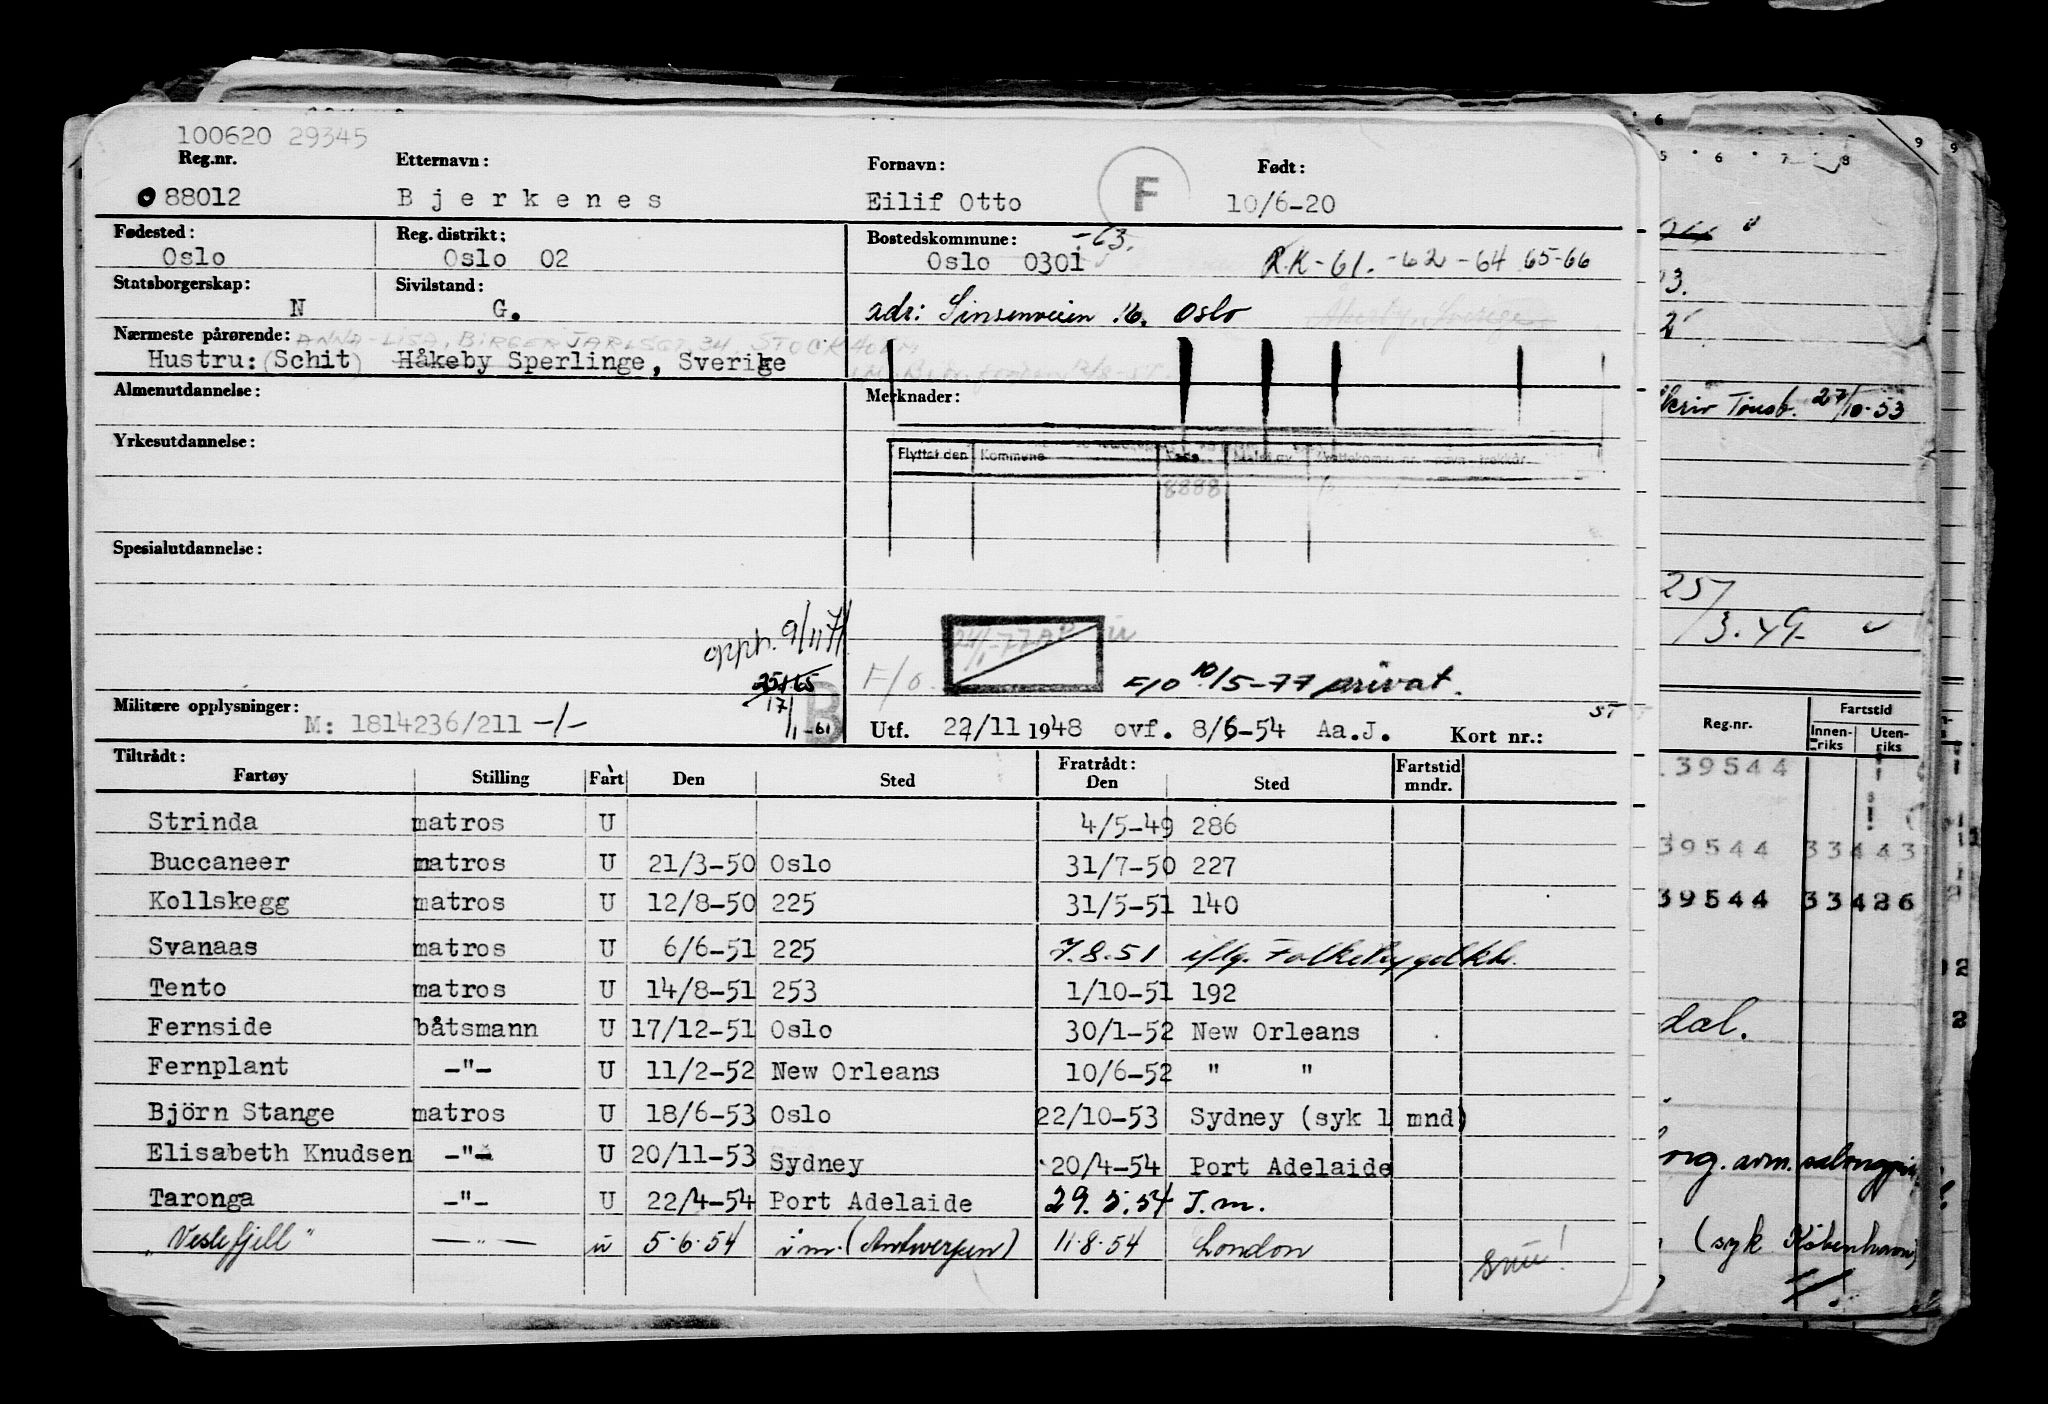 100620 29345
Reg.nr. Etternavn: Fornavn: F Født:
88012 Bjerkenes Eilif Otto 10/6-20
Fødested: Reg. distrikt: Bostedskommune: -63.
Oslo Oslo 02 Oslo 0301 R.K-61. -62 -64 65-66
Statsborgerskap: Sivilstand:
N G. adr: Sinsenveien 16. Oslo
Nærmeste pårørende: ANNA-LISA, BIRGER JARLSGT. 34, STOCKHOLM
Hustru: (Schit) Håkeby Sperlinge, Sverige
Almenutdannelse: Merknader:
Yrkesutdannelse:
Flyttet den Kommune
8888
Spesialutdannelse:
opph. 9/11 71
24/1-77
F/o. F/o 10/5-77 privat.
25/1 65
17/1-61 B
Militære opplysninger:
M: 1814236/211 -/- Utf. 22/11 1948 ovf. 8/6-54 Aa.J. Kort nr.: ST
Tiltrådt: Fratrådt: Fartstid
Fartøy Stilling Fart Den Sted Den Sted mndr.
Strinda matros U 4/5-49 286
Buccaneer matros U 21/3-50 Oslo 31/7-50 227
Kollskegg matros U 12/8-50 225 31/5-51 140
Svanaas matros U 6/6-51 225 7.8.51 iflg. Folketrygdkt.
Tento matros U 14/8-51 253 1/10-51 192
Fernside båtsmann U 17/12-51 Oslo 30/1-52 New Orleans
Fernplant -"- U 11/2-52 New Orleans 10/6-52 " "
Björn Stange matros U 18/6-53 Oslo 22/10-53 Sydney (syk 1 mnd)
Elisabeth Knudsen -"- U 20/11-53 Sydney 20/4-54 Port Adelaide
Taronga -"- U 22/4-54 Port Adelaide 29.5.54 I.m.
"Veslefjell" -"- u 5.6.54 i m. (Antwerpen) 11.8.54 London
snu!
5 6 7 8 9 9
3.
2
skriv Tønsb. 27/10-53
25/
/3.49-
Reg.nr. Fartstid
Innenriks Utenriks
39544
39544 33443
39544 33426
dal.
(syk København)